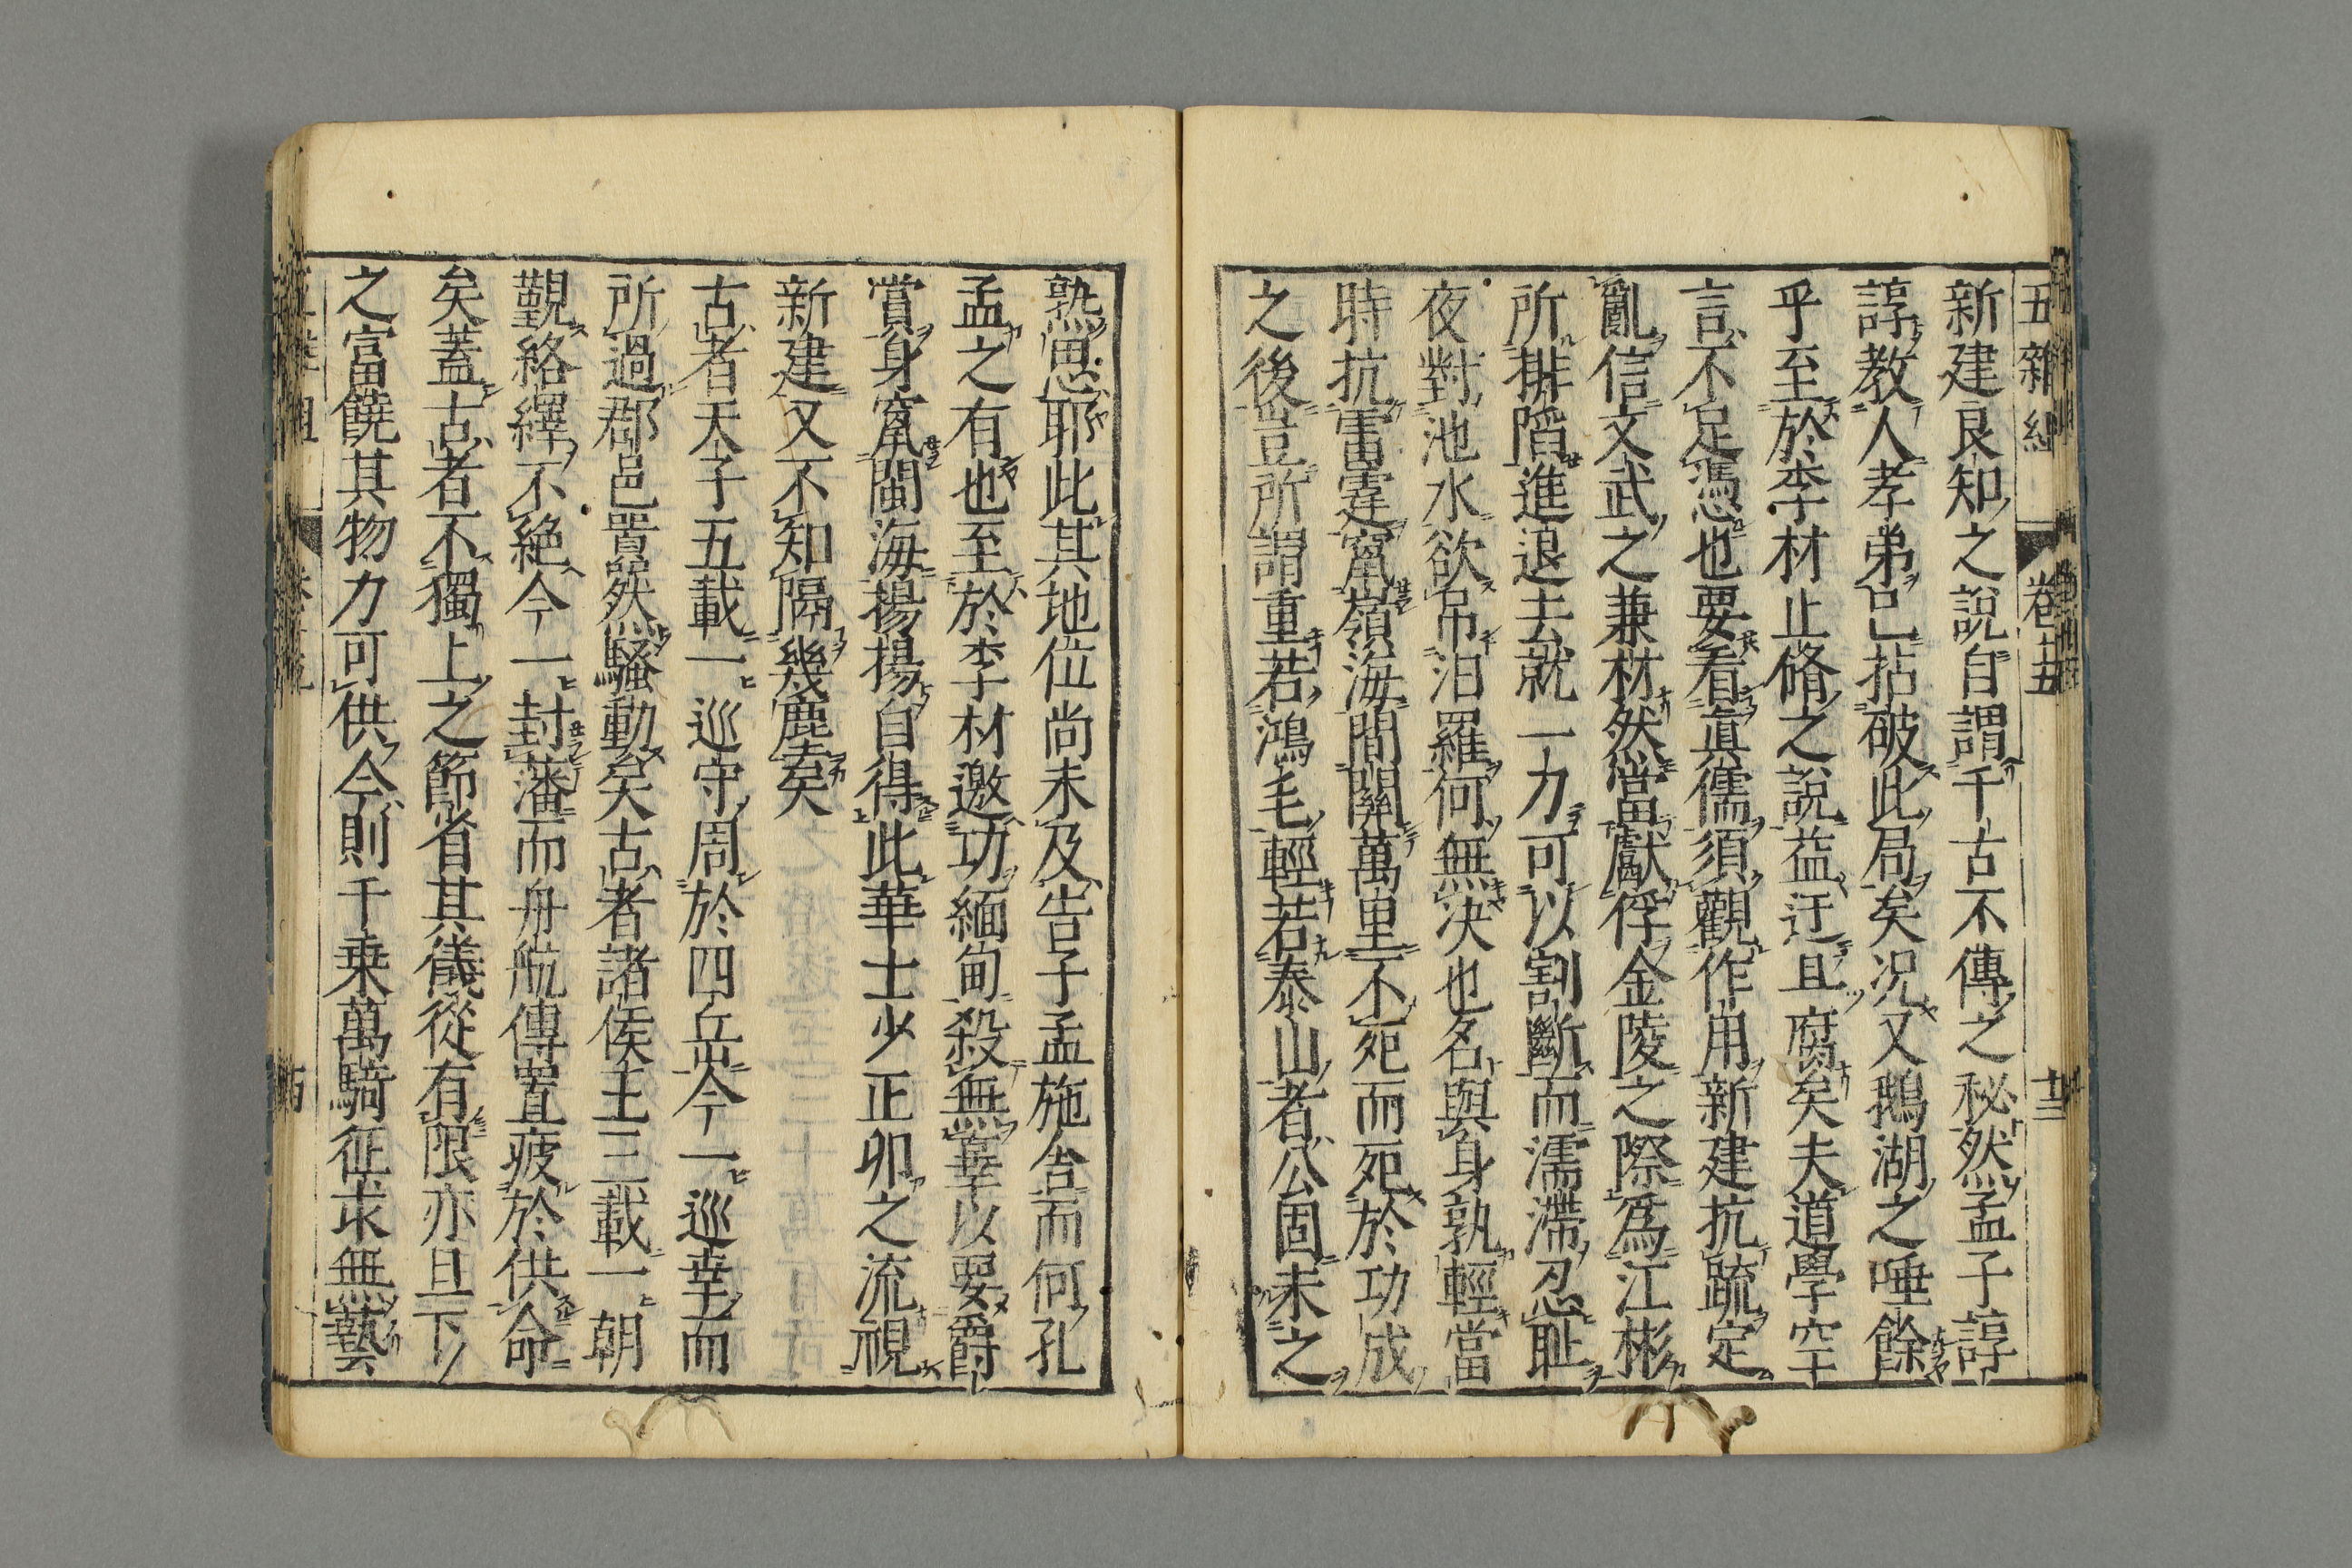 五雜組 卷十五 十三
新建良知之說自謂千古不傳之秘然孟子諄
諄教人孝弟已拈破此局矣况又鵝湖之唾餘
乎至於李材止脩之說益迂且腐矣夫道學空
言不足憑也要看眞儒須觀作用新建抗疏定
亂信文武之兼材然當獻俘金陵之際爲江彬
所排陷進退去就一力可以割斷而濡滯忍耻
夜對池水欲吊汨羅何無决也名與身孰輕當
時抗雷霆竄嶺海間關萬里不死而死於功成
之後豈所謂重若鴻毛輕若泰山者公固未之
熟思耶此其地位尚未及告子孟施舍而何孔
孟之有也至於李材邀功緬甸殺無辜以要爵
賞身竄閩海揚揚自得此華士少正卯之流視
新建又不知隔幾塵矣
古者天子五載一巡守周於四岳今一巡幸而
所過郡邑詈然騷動矣古者諸侯王三載一朝
覲絡繹不絕今一封藩而舟航傳置疲於供命
矣蓋古者不獨上之節省其儀從有限亦且下
之富饒其物力可供今則千乘萬騎征求無藝